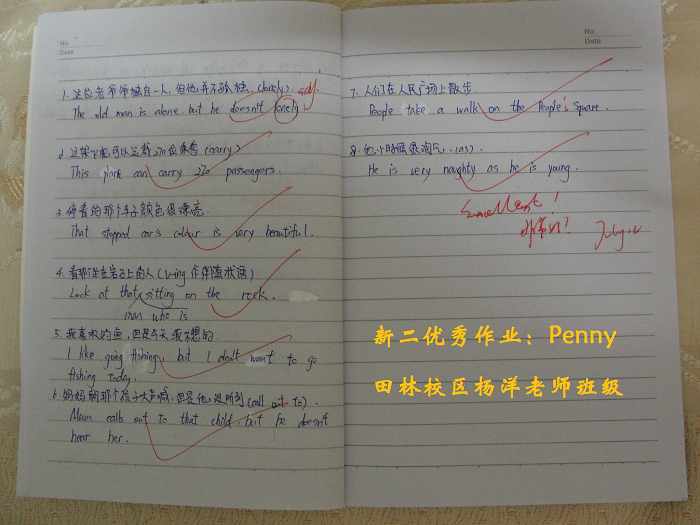 No.
Date
1. 这位老爷爷独自一人，但他并不孤独. (lonely) adj.
The old man is alone, but he doesn't lonely
2. 这架飞机可以运载270位乘客 (carry)
This plane can carry 270 passengers.
3. 停着的那个车子颜色很漂亮.
That stopped car's colour is very beautiful.
4. 看那坐在岩石上的人 (V-ing 作伴随状语)
Look at that sitting on the rock.
man who is
5. 我喜欢钓鱼, 但是今天我不想钓.
I like going fishing, but I don't want to go
fishing today.
6. 妈妈朝那个孩子大声喊, 但是他没听到 (call out to).
Mum calls out to that child, but he doesn't
hear her.
No.
Date
7. 人们在人民广场上散步.
People take a walk on the People's Square.
8. 他小时候很淘气. (as).
He is very naughty as he is young.
Excellent!
July.
新二优秀作业：Penny
田林校区杨洋老师班级